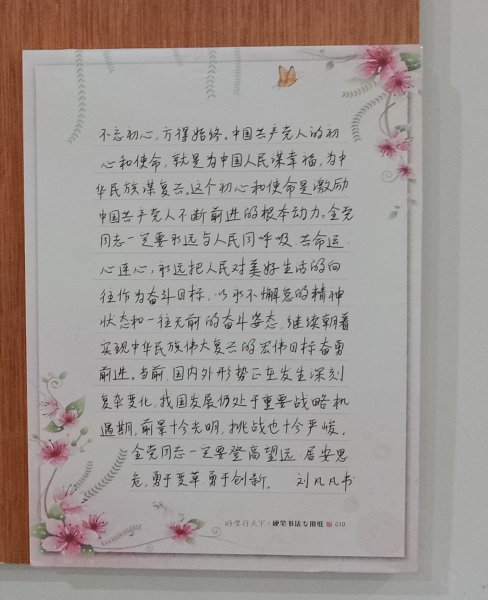 不忘初心,方得始终。中国共产党人的初
心和使命,就是为中国人民谋幸福,为中
华民族谋复兴。这个初心和使命是激励
中国共产党人不断前进的根本动力。全党
同志一定要永远与人民同呼吸、共命运、
心连心,永远把人民对美好生活的向
往作为奋斗目标,以永不懈怠的精神
状态和一往无前的奋斗姿态,继续朝着
实现中华民族伟大复兴的宏伟目标奋勇
前进。当前,国内外形势正在发生深刻
复杂变化,我国发展仍处于重要战略机
遇期,前景十分光明,挑战也十分严峻。
全党同志一定要登高望远、居安思
危,勇于变革勇于创新。 刘凡凡书
好字行天下·硬笔书法专用纸 010